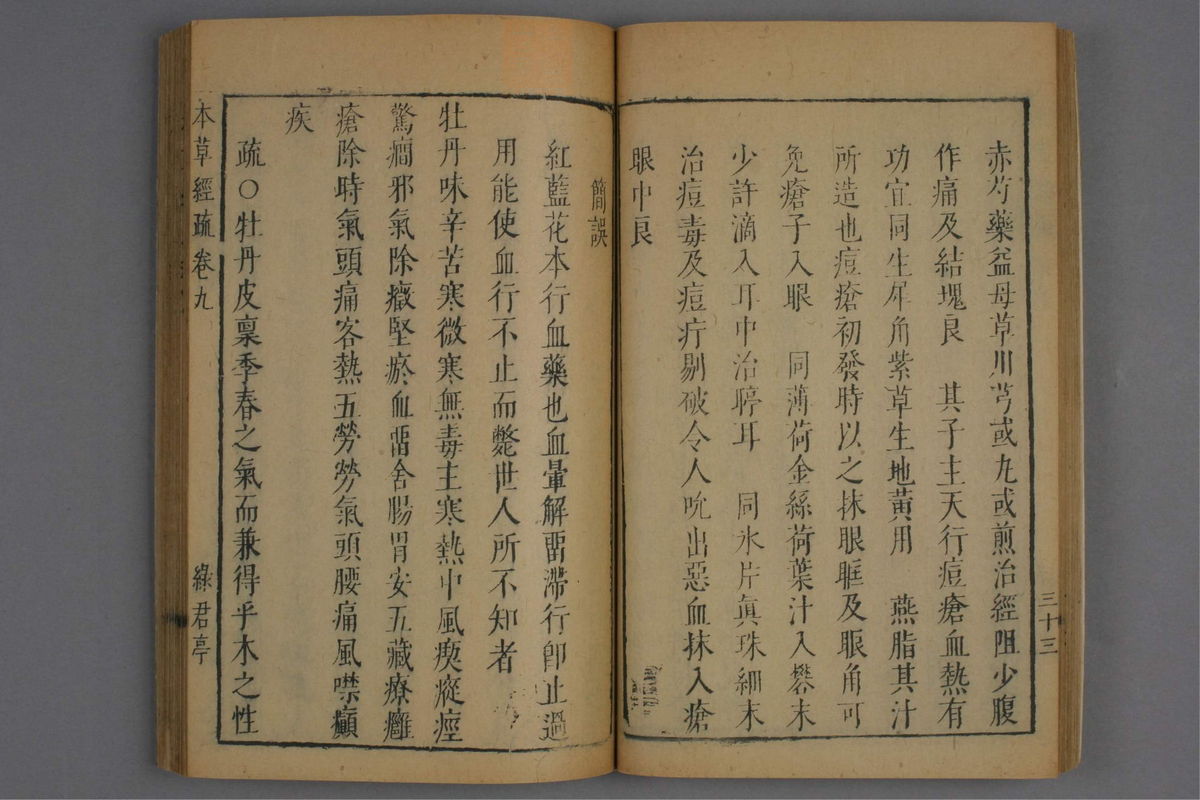 赤芍藥益母草川芎或九或煎治經阻少腹
作痛及結塊良　其子主天行痘瘡血熱有
功宜同生犀角紫草生地黄用　燕脂其汁
所造也痘瘡初發時以之抹眼眶及眼角可
免瘡子入眼　同薄荷金絲荷葉汁入礬末
少許滴入耳中治聤耳　同氷片眞珠細末
治痘毒及痘疔剔破令人吮出惡血抹入瘡
眼中良
三十三
簡誤
紅藍花本行血藥也血暈解畱滯行卽止過
用能使血行不止而斃世人所不知者
牡丹味辛苦寒微寒無毒主寒熱中風瘈瘲痙
驚癇邪氣除癥堅瘀血畱舍腸胃安五藏療癰
瘡除時氣頭痛客熱五勞勞氣頭腰痛風噤癲
疾
疏〇牡丹皮稟季春之氣而兼得乎木之性
本草經疏卷九
綠君亭